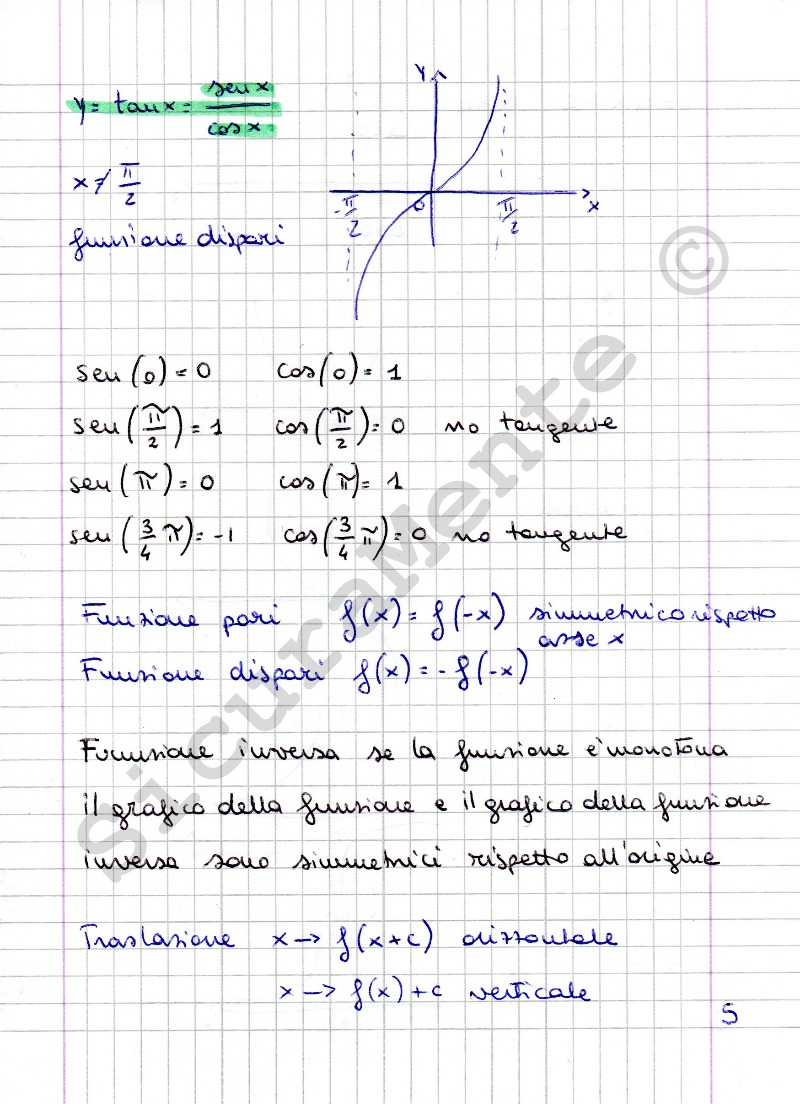 y = tan x = sen x / cos x
x ≠ π/2
funzione dispari
y
-π/2 0 π/2 x
sen (0) = 0 cos (0) = 1
sen (π/2) = 1 cos (π/2) = 0 no tangente
sen (π) = 0 cos (π) = 1
sen (3/4 π) = -1 cos (3/4 π) = 0 no tangente
Funzione pari f(x) = f(-x) simmetrico rispetto
asse x
Funzione dispari f(x) = - f(-x)
Funzione inversa se la funzione è monotona
il grafico della funzione e il grafico della funzione
inversa sono simmetrici rispetto all'origine
Traslazione x → f(x+c) orizzontale
x → f(x) + c verticale
5
SicuraMente ©